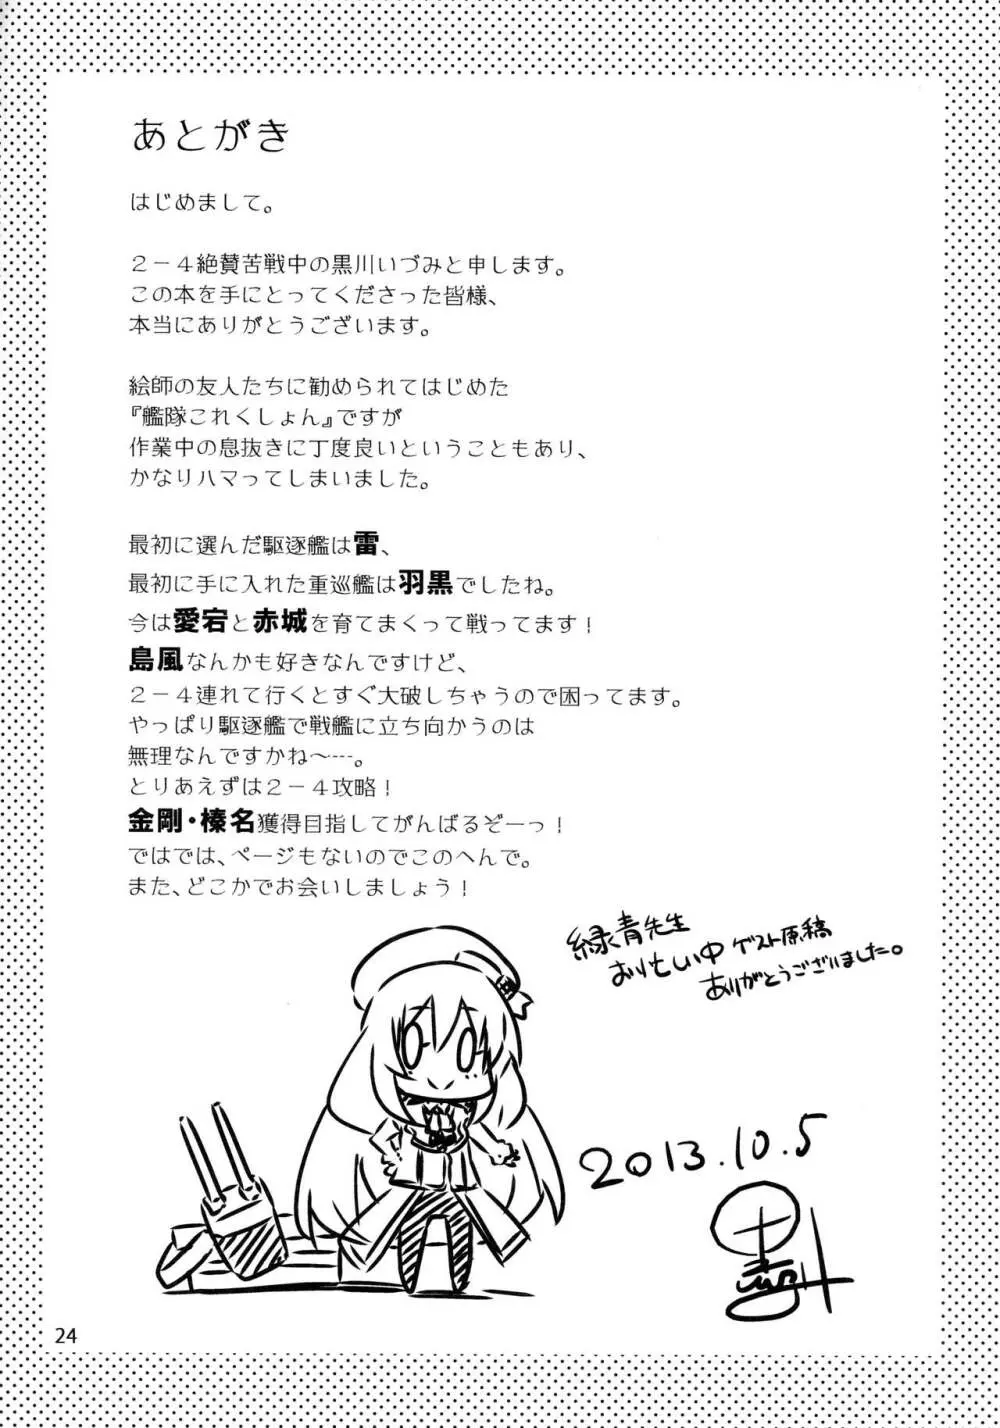 あとがき
はじめまして。
２－４絶賛苦戦中の黒川いづみと申します。
この本を手にとってくださった皆様、
本当にありがとうございます。
絵師の友人たちに勧められてはじめた
『艦隊これくしょん』ですが
作業中の息抜きに丁度良いということもあり、
かなりハマってしまいました。
最初に選んだ駆逐艦は雷、
最初に手に入れた重巡艦は羽黒でしたね。
今は愛宕と赤城を育てまくって戦ってます！
島風なんかも好きなんですけど、
２－４連れて行くとすぐ大破しちゃうので困ってます。
やっぱり駆逐艦で戦艦に立ち向かうのは
無理なんですかね～…。
とりあえずは２－４攻略！
金剛・榛名獲得目指してがんばるぞーっ！
ではでは、ページもないのでこのへんで。
また、どこかでお会いしましょう！
緑青先生
お忙しい中 ゲスト原稿
ありがとうございました。
2013.10.5
24